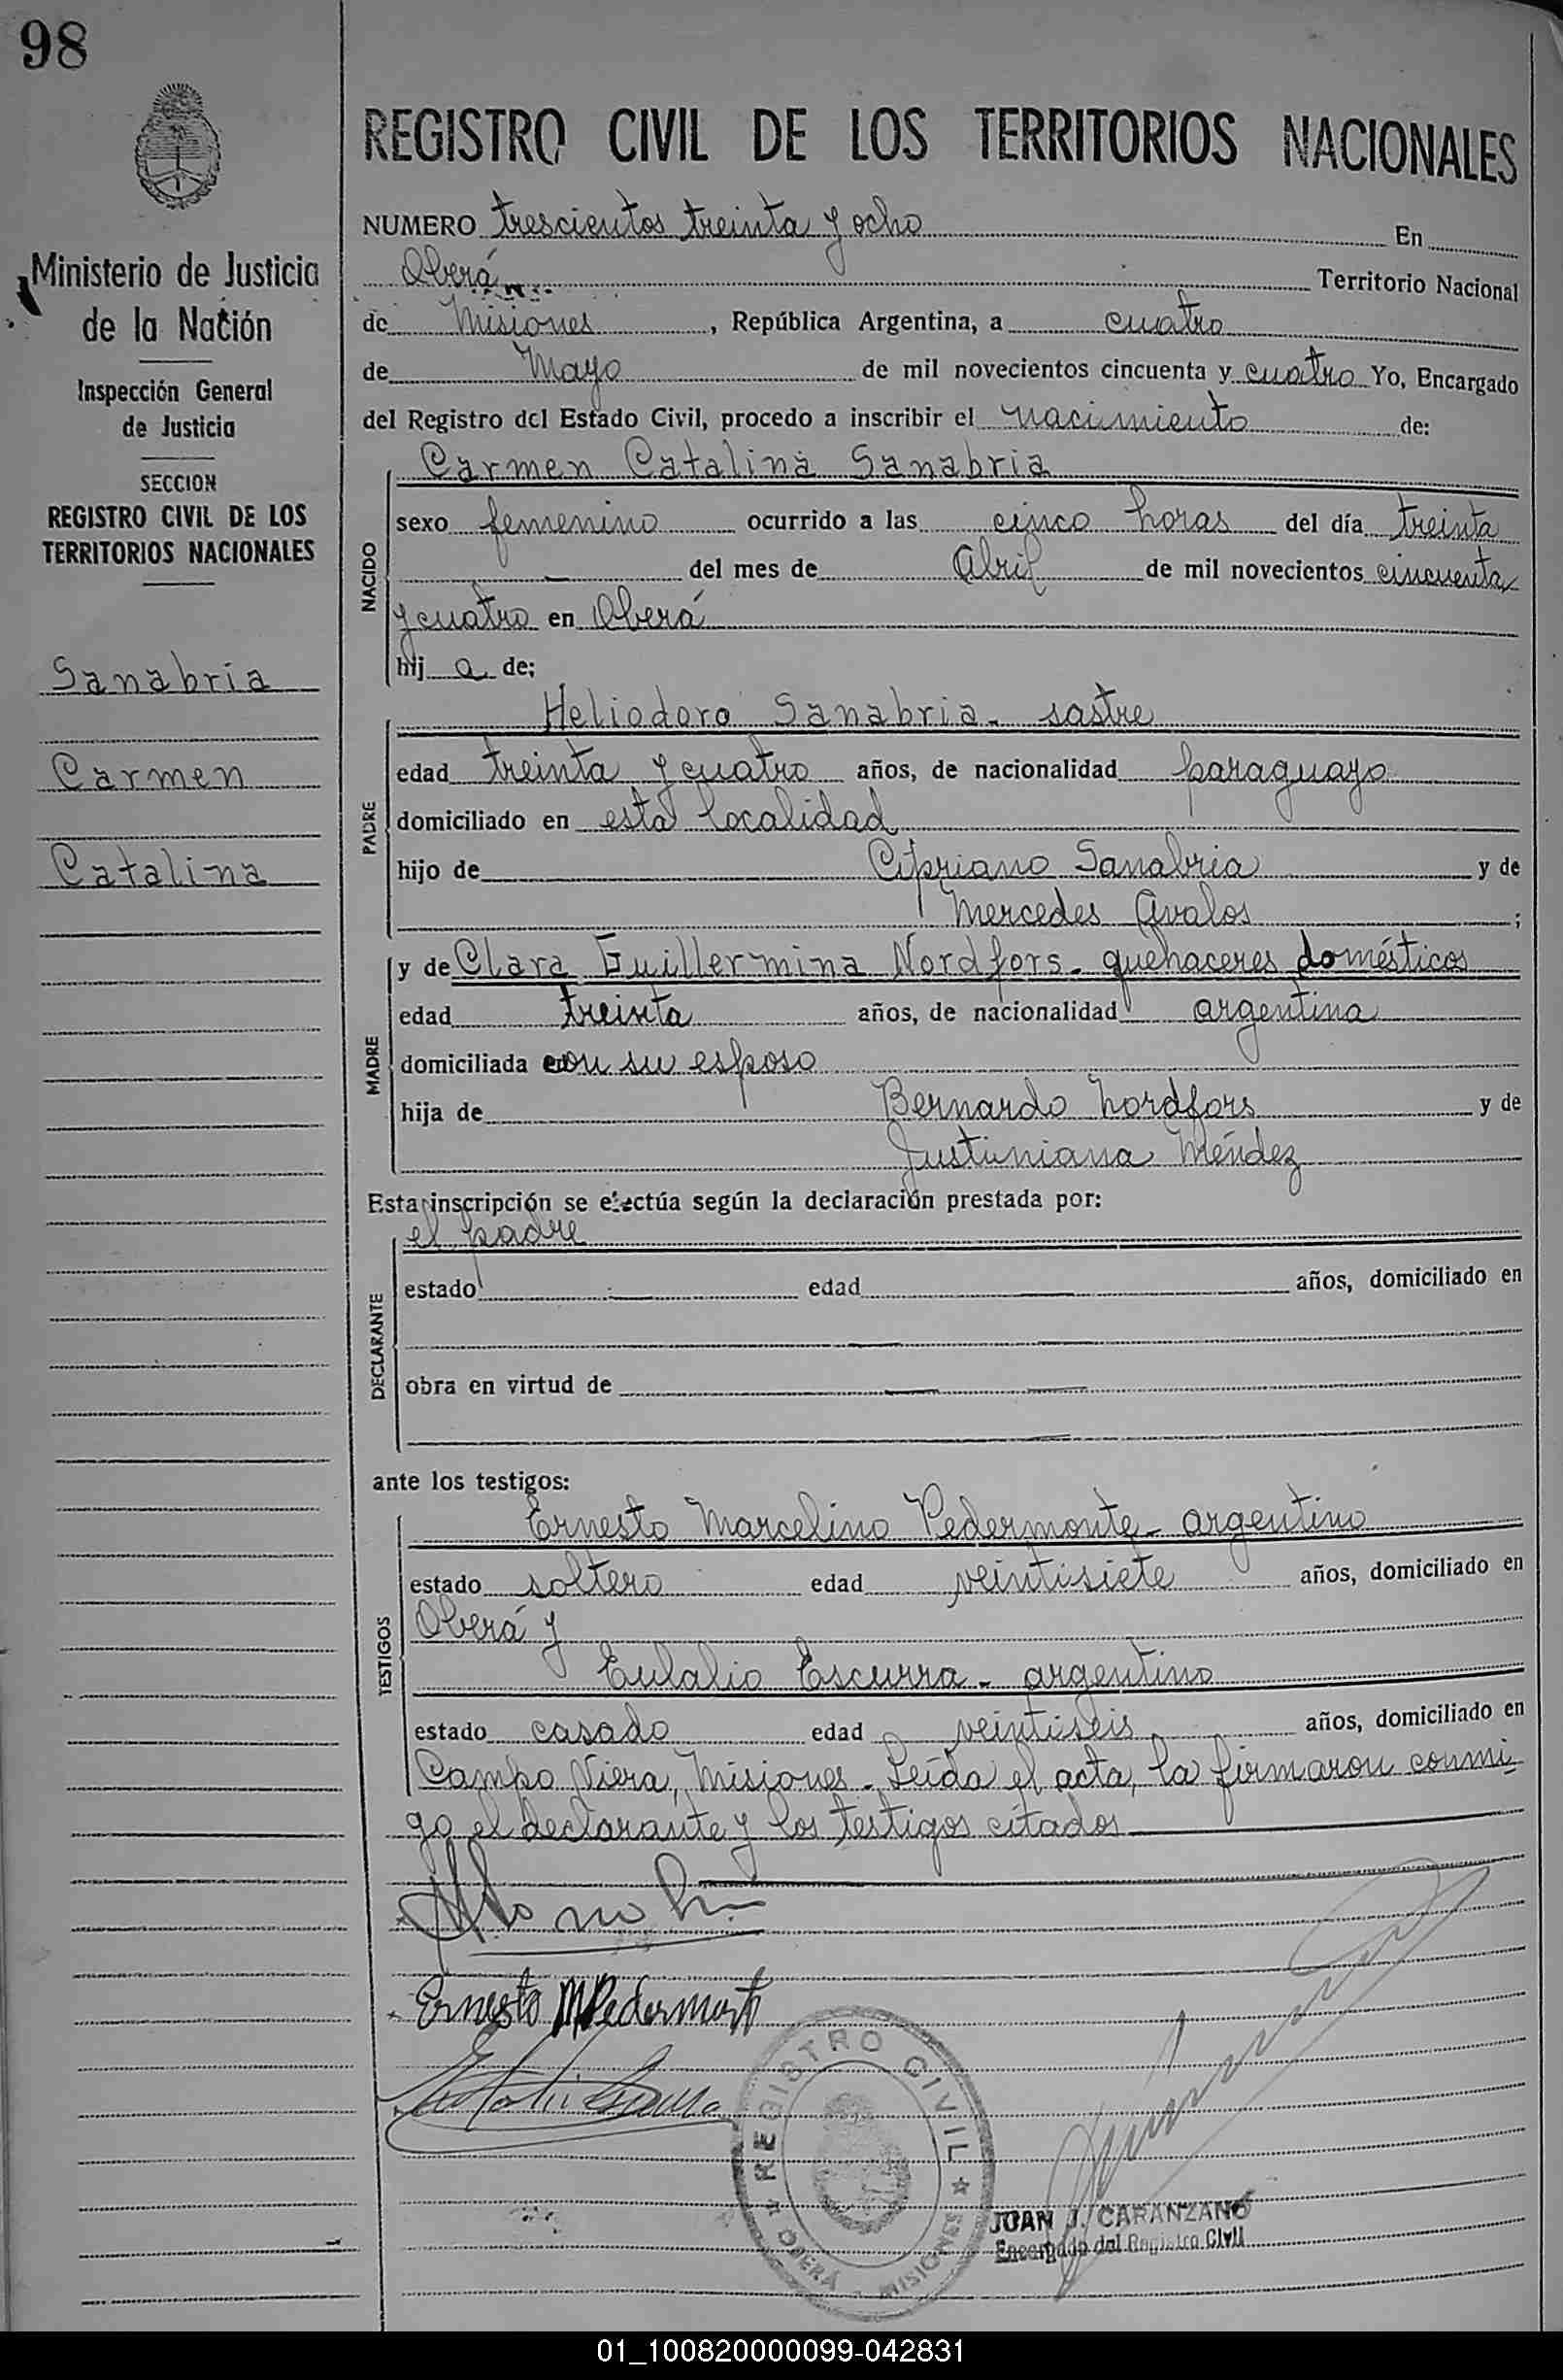 98
REGISTRO CIVIL DE LOS TERRITORIOS NACIONALES
Ministerio de Justicia
de la Nación
Inspección General
de Justicia
SECCION
REGISTRO CIVIL DE LOS
TERRITORIOS NACIONALES
Sanabria
Carmen
Catalina
NUMERO trescientos treinta y ocho En
Oberá Territorio Nacional
de Misiones, República Argentina, a cuatro
de Mayo de mil novecientos cincuenta y cuatro Yo, Encargado
del Registro del Estado Civil, procedo a inscribir el nacimiento de:
NACIDO
Carmen Catalina Sanabria
sexo femenino ocurrido a las cinco horas del día treinta
— del mes de Abril de mil novecientos cincuenta
y cuatro en Oberá
hij a de:
PADRE
Heliodoro Sanabria - sastre
edad treinta y cuatro años, de nacionalidad paraguayo
domiciliado en esta localidad
hijo de Cipriano Sanabria y de
Mercedes Avalos ;
MADRE
y de Clara Guillermina Nordfors - quehaceres domésticos
edad treinta años, de nacionalidad argentina
domiciliada con su esposo
hija de Bernardo Nordfors y de
Justiniana Méndez
Esta inscripción se efectúa según la declaración prestada por:
DECLARANTE
el padre
estado — edad — años, domiciliado en
obra en virtud de —
ante los testigos:
TESTIGOS
Ernesto Marcelino Pedermonte - argentino
estado soltero edad veintisiete años, domiciliado en
Oberá y
Eulalio Escurra - argentino
estado casado edad veintiseis años, domiciliado en
Campo Viera, Misiones - Leída el acta, la firmaron conmi-
go el declarante y los testigos citados
Ernesto M Pedermonte
REGISTRO CIVIL
OBERÁ - MISIONES
JUAN J. CARANZANO
Encargado del Registro Civil
01_100820000099-042831